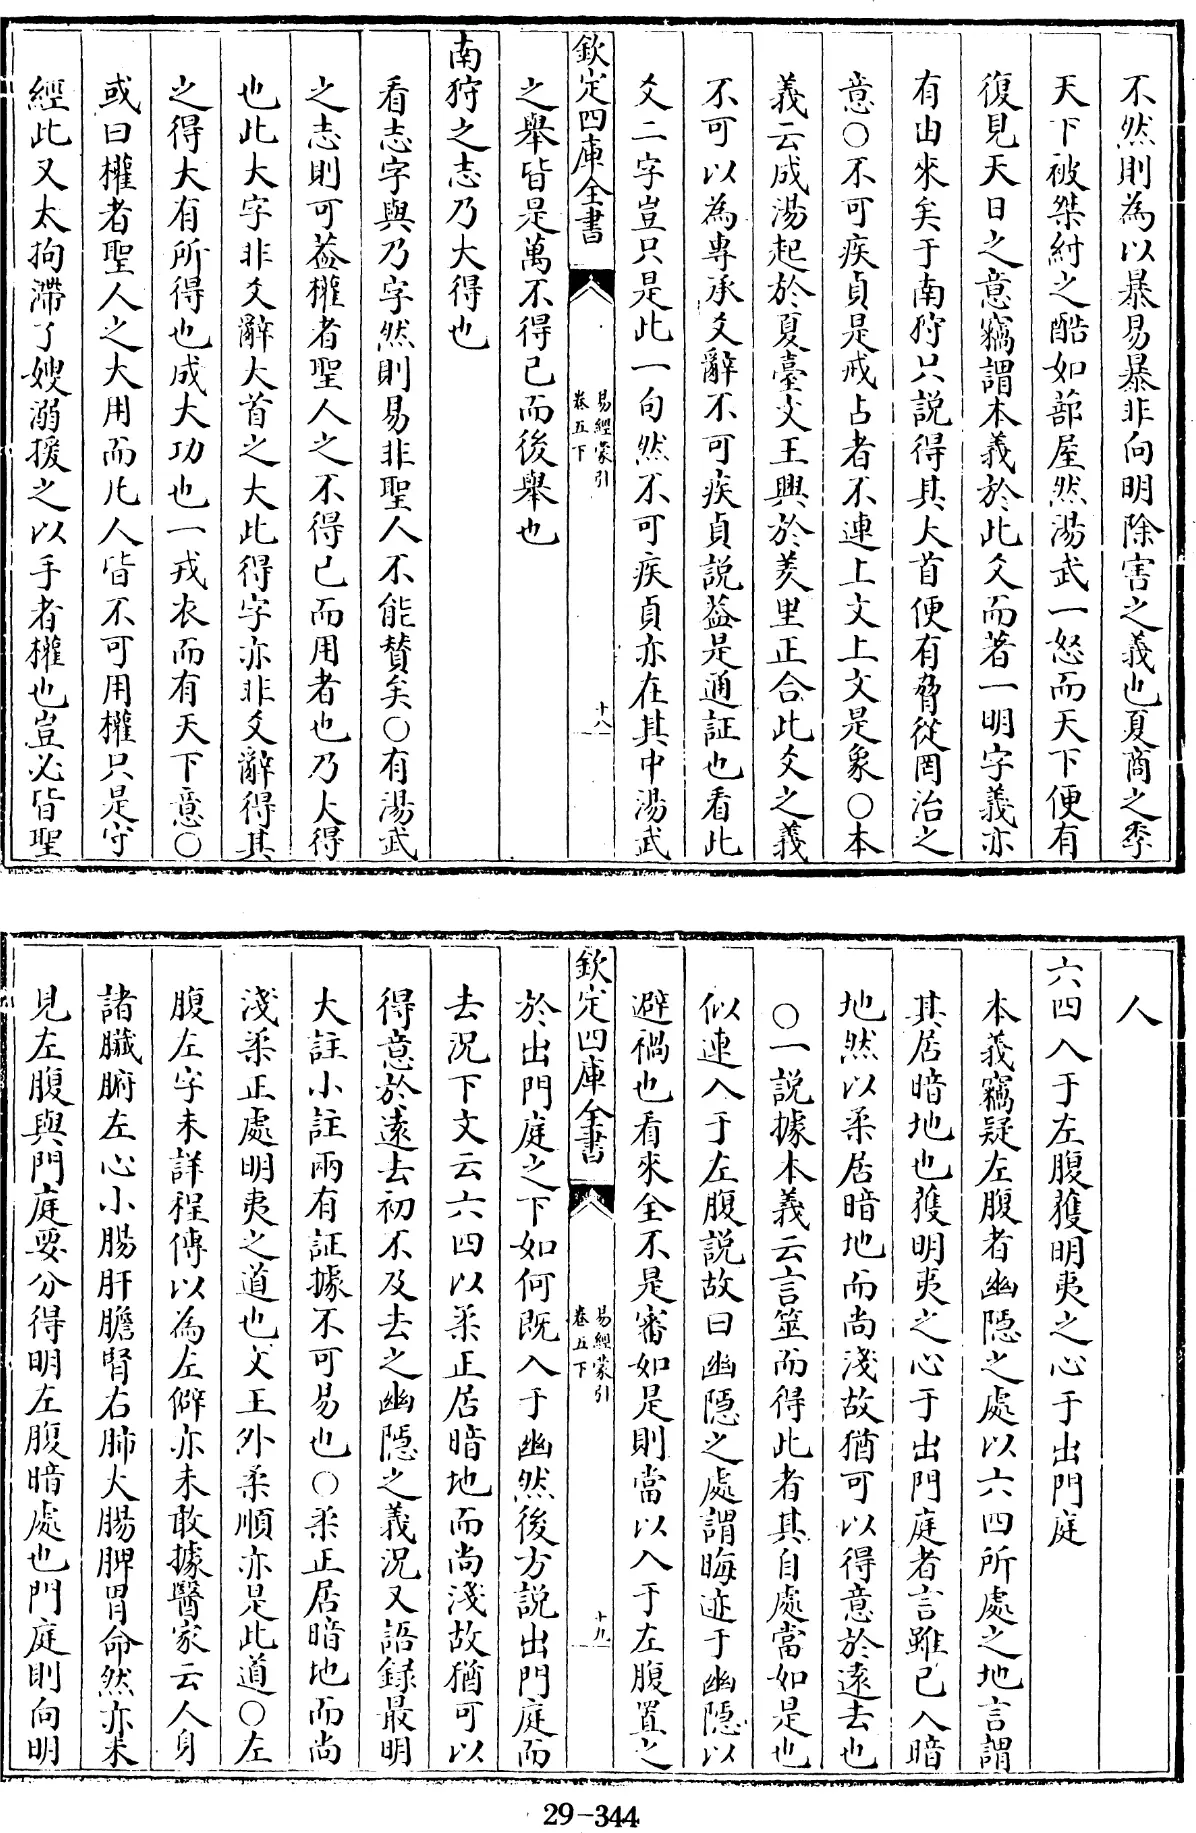 不然則為以暴易暴非向明除害之義也夏商之季
天下被桀紂之酷如蔀屋然湯武一怒而天下便有
復見天日之意竊謂本義於此爻而著一明字義亦
有由來矣于南狩只説得其大首便有脅從罔治之
意○不可疾貞是戒占者不連上文上文是象○本
義云成湯起於夏臺文王興於羑里正合此爻之義
不可以為專承爻辭不可疾貞説葢是通証也看此
爻二字豈只是此一句然不可疾貞亦在其中湯武
欽定四庫全書
易經蒙引
卷五下
十八
之舉皆是萬不得已而後舉也
南狩之志乃大得也
看志字與乃字然則易非聖人不能賛矣○有湯武
之志則可葢權者聖人之不得已而用者也乃大得
也此大字非爻辭大首之大此得字亦非爻辭得其
之得大有所得也成大功也一戎衣而有天下意○
或曰權者聖人之大用而凡人皆不可用權只是守
經此又太拘滯了嫂溺援之以手者權也豈必皆聖
人
六四入于左腹獲明夷之心于出門庭
本義竊疑左腹者幽隠之處以六四所處之地言謂
其居暗地也獲明夷之心于出門庭者言雖已入暗
地然以柔居暗地而尚淺故猶可以得意於逺去也
○一説據本義云言筮而得此者其自處當如是也
似連入于左腹説故曰幽隠之處謂晦迹于幽隠以
避禍也看來全不是審如是則當以入于左腹置之
欽定四庫全書
易經蒙引
卷五下
十九
於出門庭之下如何既入于幽然後方説出門庭而
去況下文云六四以柔正居暗地而尚淺故猶可以
得意於逺去初不及去之幽隠之義況又語録最明
大註小註兩有証據不可易也○柔正居暗地而尚
淺柔正處明夷之道也文王外柔順亦是此道○左
腹左字未詳程傳以為左僻亦未敢據醫家云人身
諸臟腑左心小腸肝膽腎右肺大腸脾胃命然亦未
見左腹與門庭要分得明左腹暗處也門庭則向明
29-344